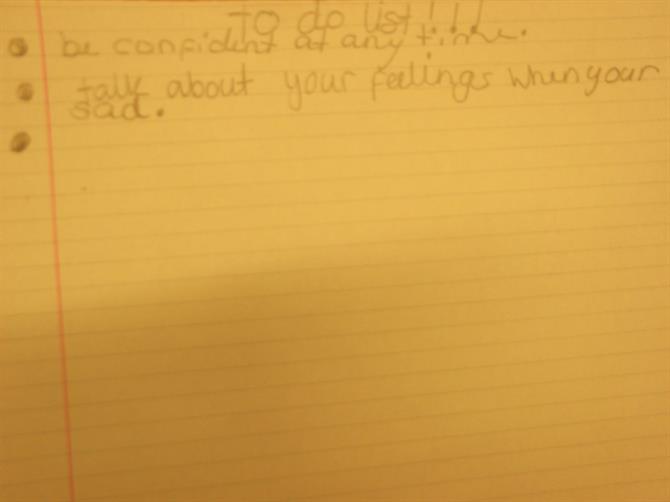 To do list!!!
be confident at any time.
talk about your feelings when your
sad.